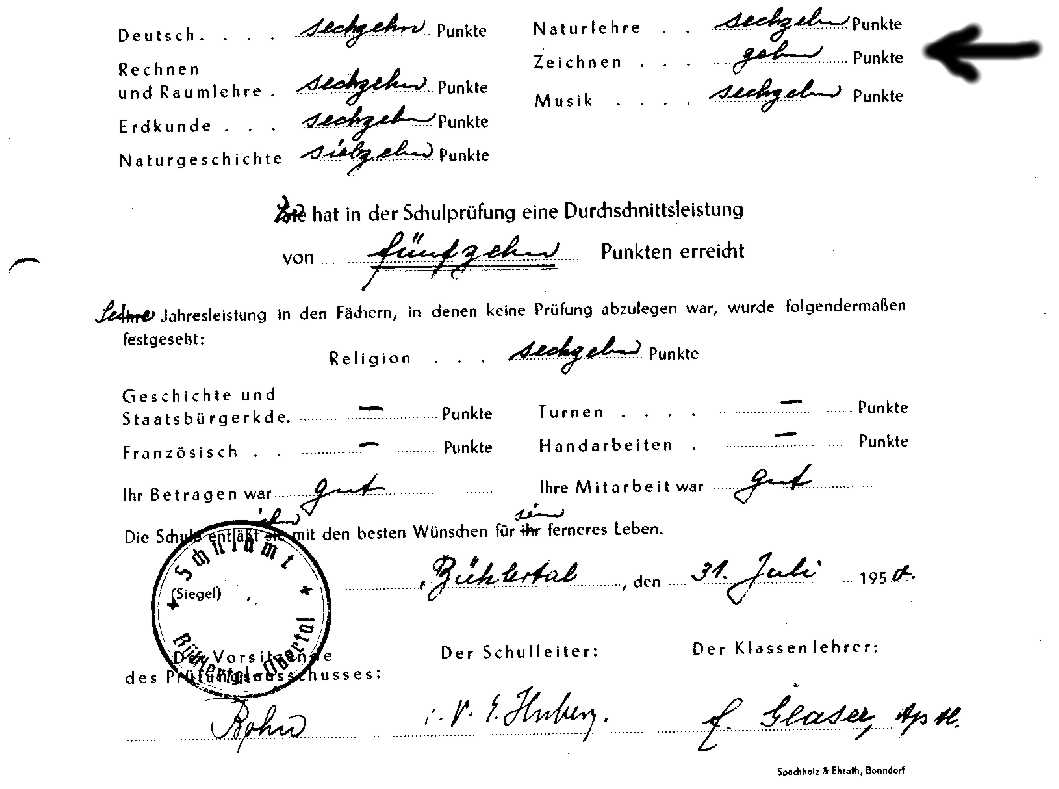 Deutsch. . . . sechzehn Punkte
Naturlehre . . sechzehn Punkte
Rechnen
und Raumlehre . sechzehn Punkte
Zeichnen . . . zehn Punkte
Erdkunde . . . sechzehn Punkte
Musik . . . . sechzehn Punkte
Naturgeschichte siebzehn Punkte
hat in der Schulprüfung eine Durchschnittsleistung
von fünfzehn Punkten erreicht
Seine Ihre Jahresleistung in den Fächern, in denen keine Prüfung abzulegen war, wurde folgendermaßen
festgesetzt:
Religion . . . sechzehn Punkte
Geschichte und
Staatsbürgerkde. — Punkte
Turnen . . . . — Punkte
Französisch . . — Punkte
Handarbeiten . — Punkte
Ihr Betragen war gut
Ihre Mitarbeit war gut
ihn sein
Die Schule entläßt sie mit den besten Wünschen für ihr ferneres Leben.
Bühlertal, den 31. Juli 1950.
Schulamt
(Siegel)
Bühlertal-Obertal
Der Vorsitzende
des Prüfungsausschusses:
Der Schulleiter:
Der Klassenlehrer:
Glaser,
Spachholz & Ehrath, Bonndorf